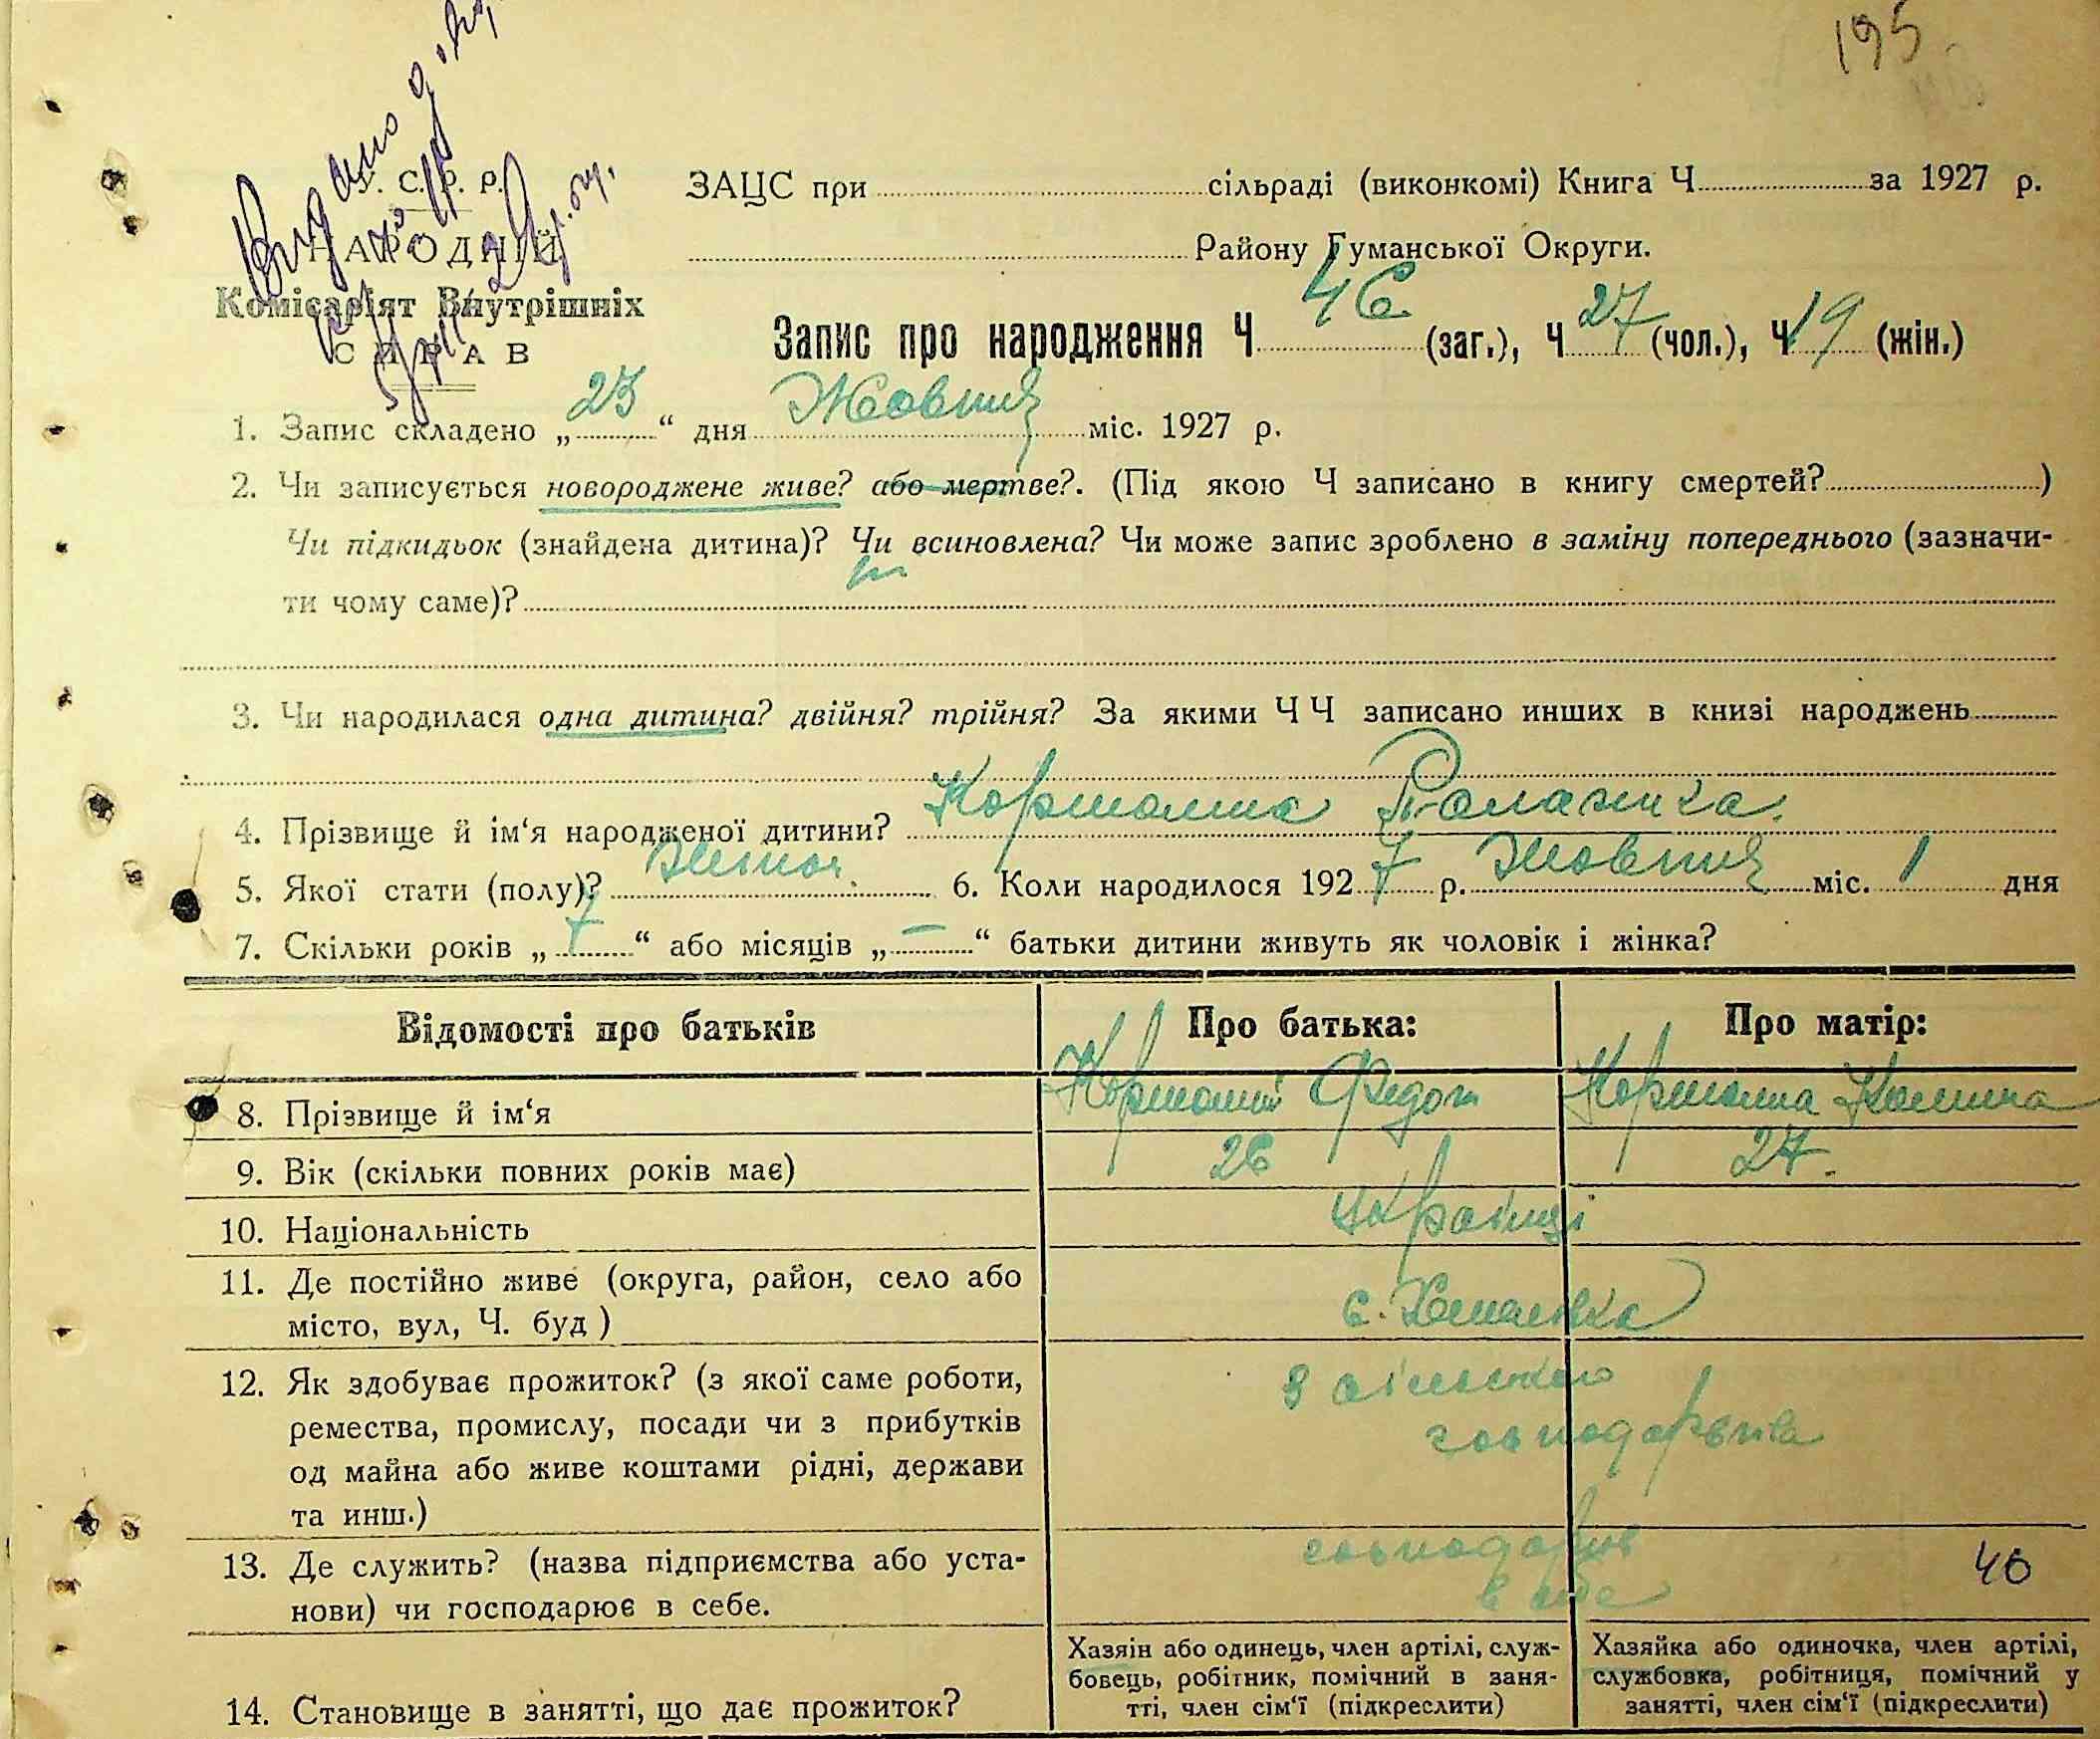 195
Видано
У. С. Р. Р.
НАРОДНІЙ
Комісаріят Внутрішніх
СПРАВ
ЗАЦС при сільраді (виконкомі) Книга Ч за 1927 р.
Району Гуманської Округи.
Запис про народження Ч 46 (заг.), Ч 27 (чол.), Ч 19 (жін.)
1. Запис складено „23“ дня Жовтня міс. 1927 р.
2. Чи записується новороджене живе? або мертве?. (Під якою Ч записано в книгу смертей? )
Чи підкидьок (знайдена дитина)? Чи всиновлена? Чи може запис зроблено в заміну попереднього (зазначи-
ти чому саме)? ні
3. Чи народилася одна дитина? двійня? трійня? За якими Ч Ч записано инших в книзі народжень
4. Прізвище й ім‘я народженої дитини? Палажка.
5. Якої стати (полу)? Жіноч. 6. Коли народилося 1927 р. Жовтня міс. 1 дня
7. Скільки років „7“ або місяців „—“ батьки дитини живуть як чоловік і жінка?
Відомості про батьків Про батька: Про матір:
8. Прізвище й ім‘я Федот
9. Вік (скільки повних років має) 26 27.
10. Національність Українці
11. Де постійно живе (округа, район, село або
місто, вул, Ч. буд ) с.
12. Як здобуває прожиток? (з якої саме роботи,
ремества, промислу, посади чи з прибутків
од майна або живе коштами рідні, держави
та инш.)
з сільского
господарства
13. Де служить? (назва підприємства або уста-
нови) чи господарює в себе.
господарює
в себе
40
14. Становище в занятті, що дає прожиток?
Хазяїн або одинець, член артілі, служ-
бовець, робітник, помічний в заня-
тті, член сім‘ї (підкреслити)
Хазяйка або одиночка, член артілі,
службовка, робітниця, помічний у
занятті, член сім‘ї (підкреслити)